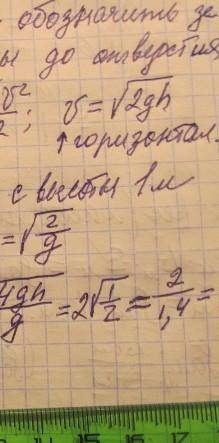 обозначить
до отверстия
v²/2; v=√2gh
↑ горизонтал.
с высоты 1м
=√2/g
4gh/g = 2√1/2 = 2/1,4 =
14 15 16 17